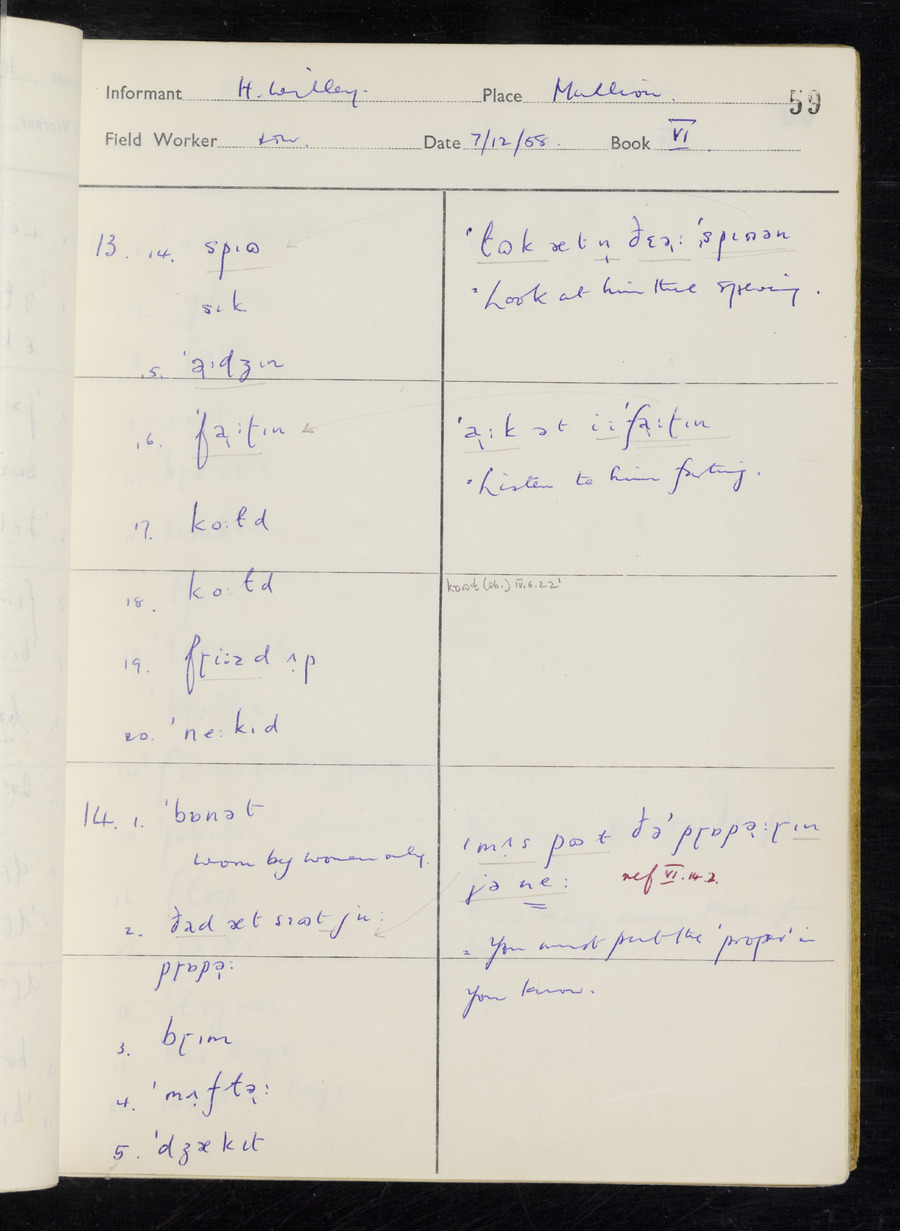 Informant H. Willey. Place Mullion. 59
Field Worker Date 7/12/58. Book VI
13. 14. spɪɷ
sɪk
15.
16. ˈfa̢ːtɪn
17. koːɫd
18. koːɫd
19. fɽiːzd ʌ̣p
20. ˈneːkɪd
14. 1. ˈbɒnəɫ
worn by women only.
2. ðad æt
pɽɒpə̢ː
3. bɽɪm
4. ˈmʌ̣ftə̢ː
5. ˈdʒækɪt
ˈɫɷk æt n̩ ðɛə̢ː ˈspɪɷən
= Look at him there spewing.
ˈa̢ːk ət iː ˈfa̢ːtɪn
= Listen to him farting.
(sb.) IV.6.22
ˈmʌ̣s pɷt ðə ˈpɽɒpə̢ːɽ ɪn
jə neː ref VI.14.2.
= You must put the 'proper' in
you know.